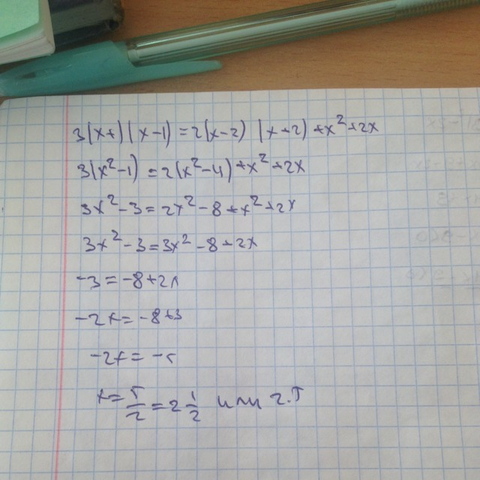 3(x+)(x-1)=2(x-2)(x+2)+x²+2x
3(x²-1)=2(x²-4)+x²+2x
3x²-3=2x²-8+x²+2x
3x²-3=3x²-8+2x
-3=-8+2x
-2x=-8+3
-2x=-5
x=5/2=2 1/2 или 2.5